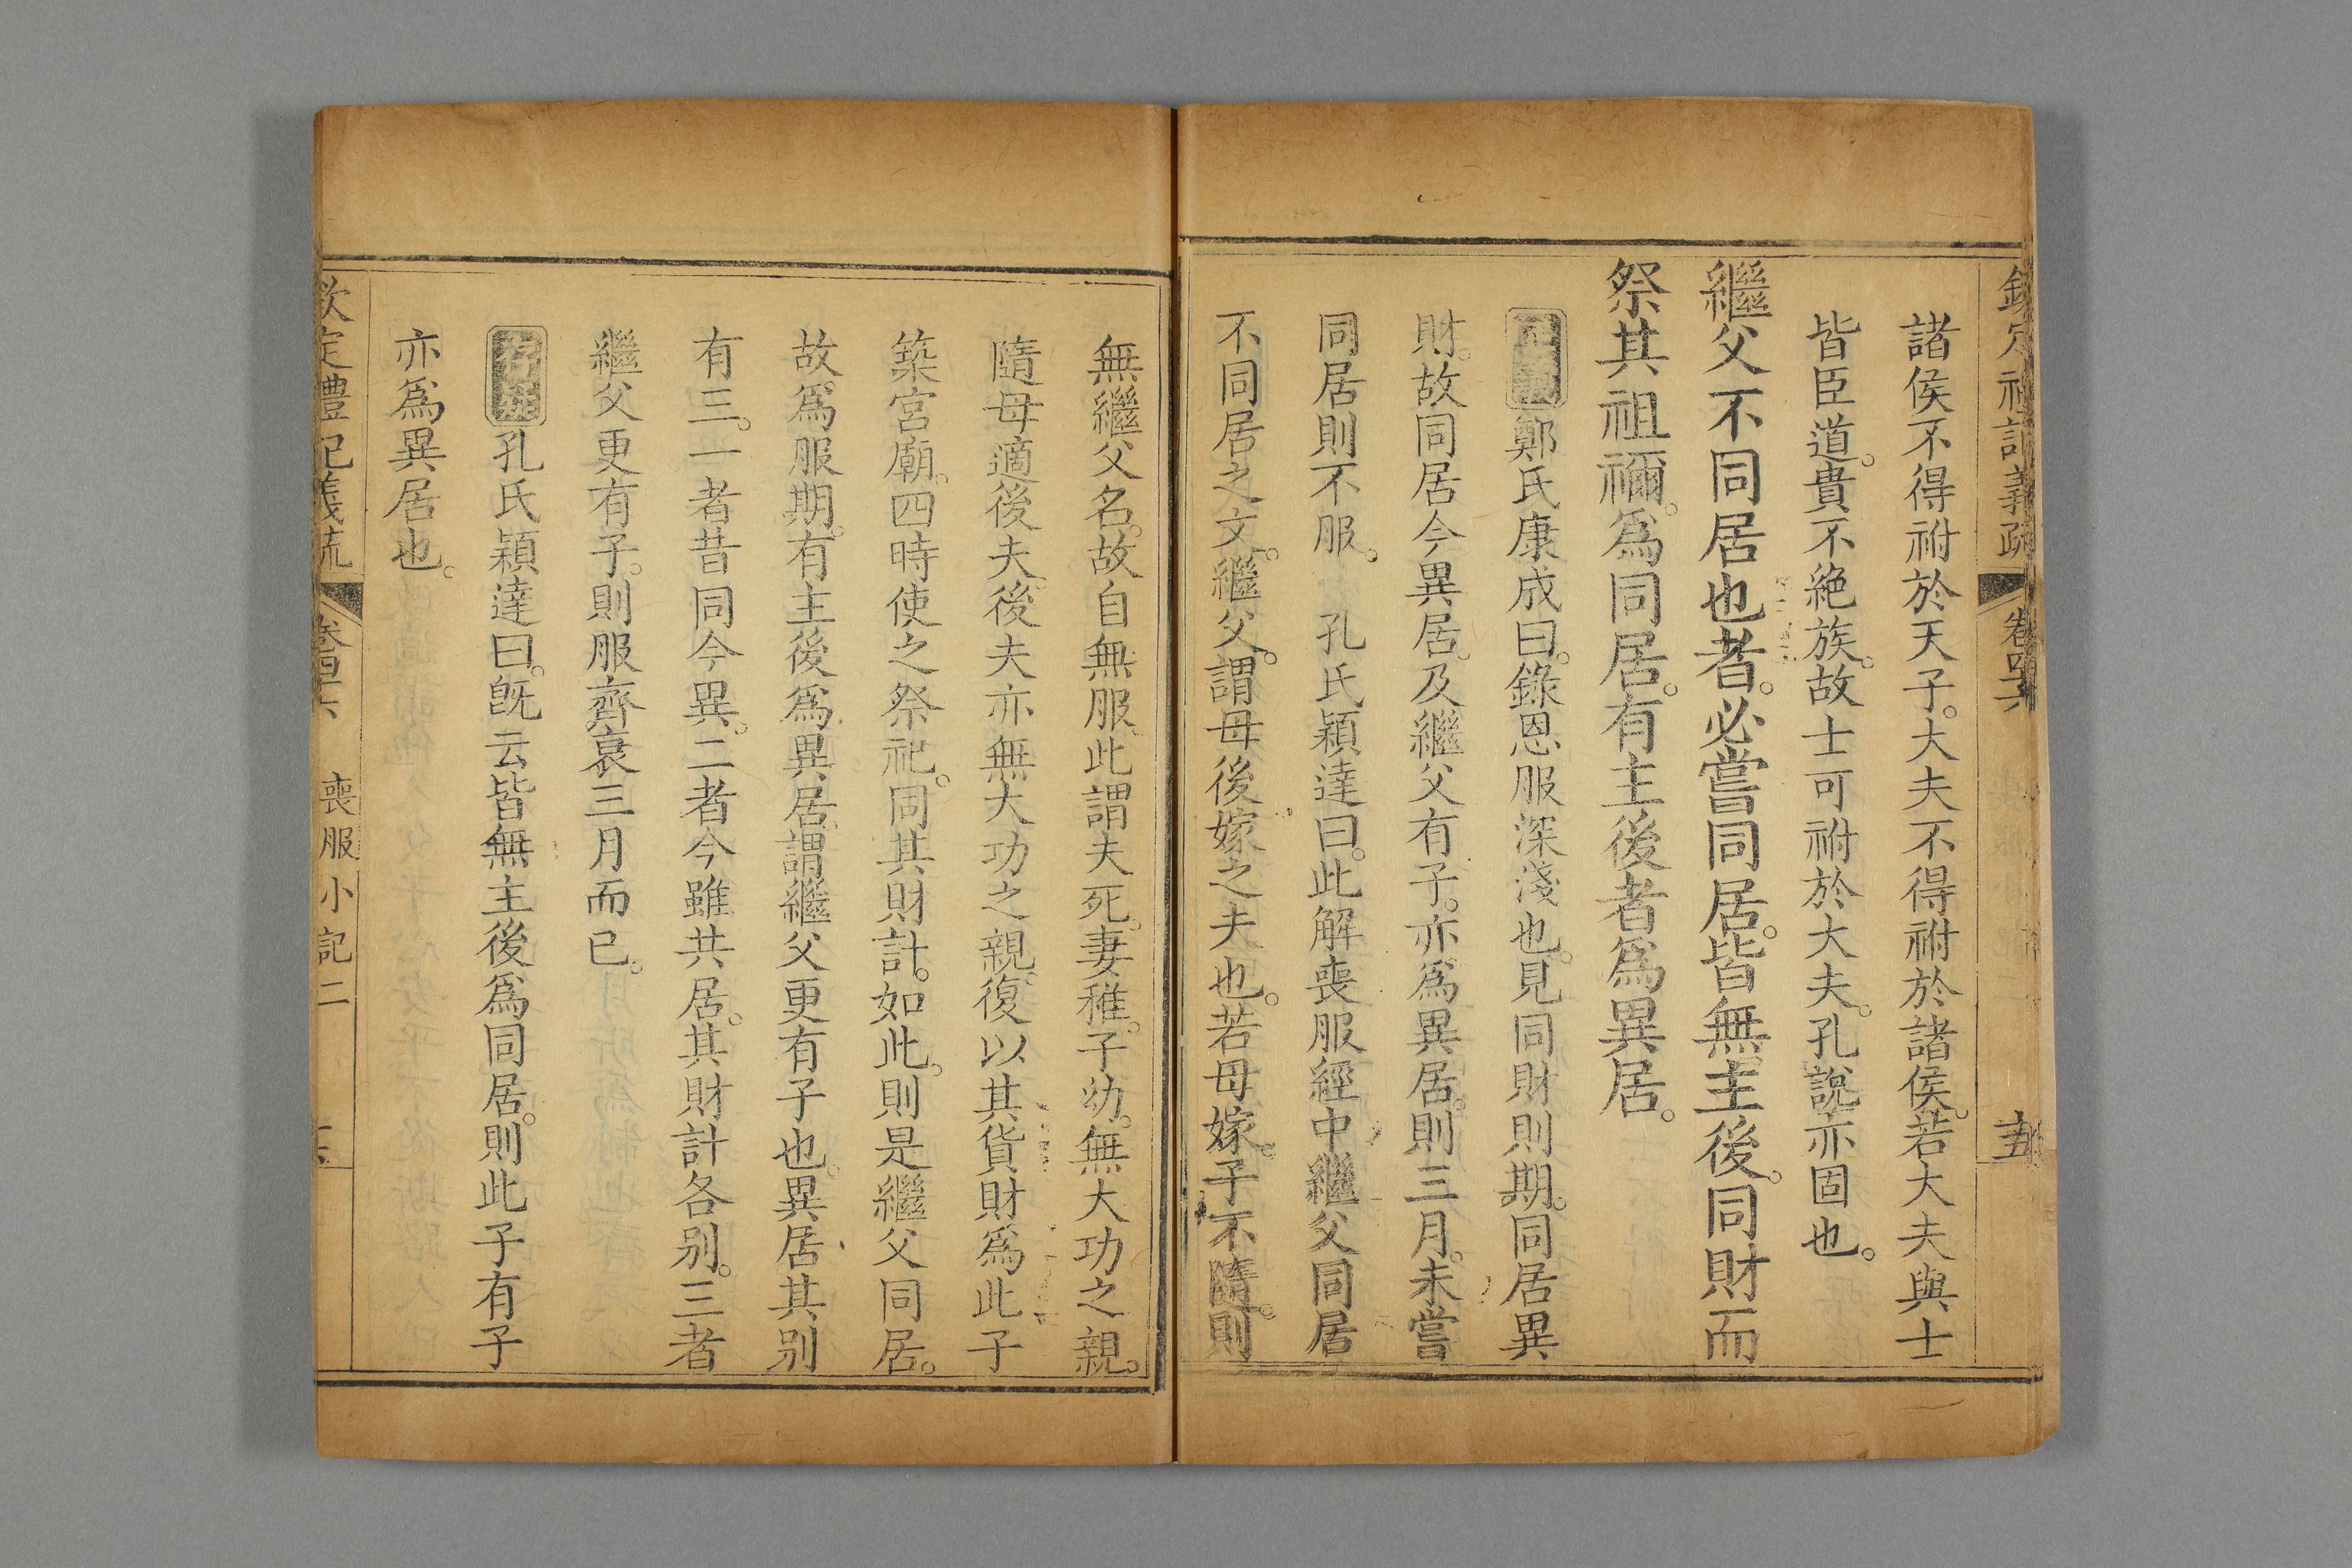 欽定禮記義疏 卷四十六 十五
諸侯不得祔於天子。大夫不得祔於諸侯。若大夫與士
皆臣道。貴不絶族。故士可祔於大夫。孔說亦固也。
繼父不同居也者。必嘗同居。皆無主後。同財而
祭其祖禰。爲同居。有主後者爲異居。
正義鄭氏康成曰。錄恩服深淺也。見同財則期。同居異
財。故同居今異居。及繼父有子。亦爲異居。則三月。未嘗
同居則不服。 孔氏穎達曰。此解喪服經中繼父同居
不同居之文。繼父。謂母後嫁之夫也。若母嫁。子不隨。則
無繼父名。故自無服。此謂夫死。妻稚。子幼。無大功之親。
隨母適後夫。後夫亦無大功之親。復以其貨財爲此子
築宮廟。四時使之祭祀。同其財計。如此。則是繼父同居。
故爲服期。有主後爲異居。謂繼父更有子也。異居其别
有三。一者昔同今異。二者今雖共居。其財計各别。三者
繼父更有子。則服齊衰三月而已。
存疑孔氏穎達曰。旣云皆無主後爲同居。則此子有子
亦爲異居也。
欽定禮記義疏 卷四十六 喪服小記二